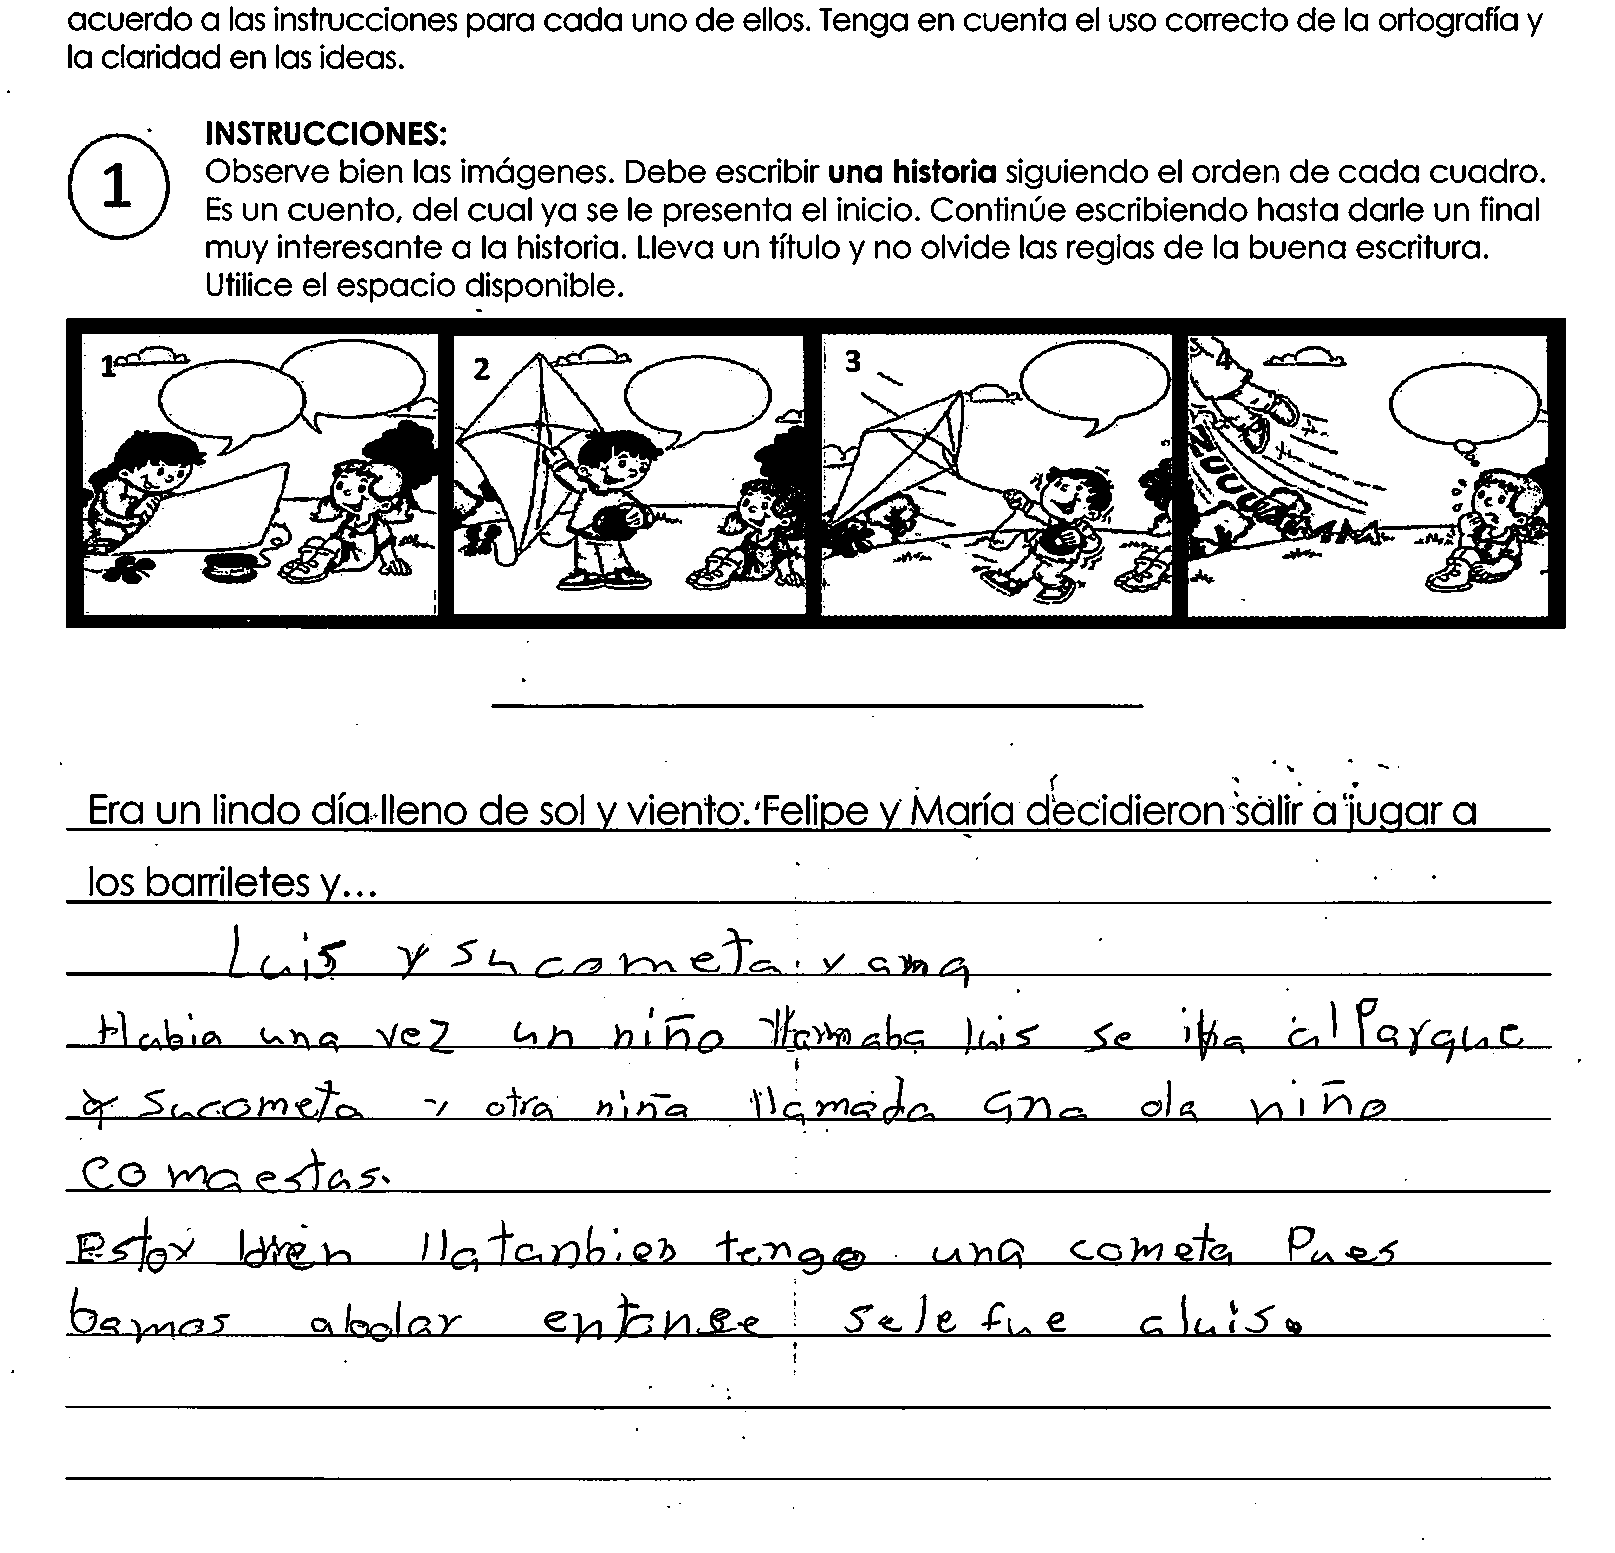 acuerdo a las instrucciones para cada uno de ellos. Tenga en cuenta el uso correcto de la ortografía y
la claridad en las ideas.
1
INSTRUCCIONES:
Observe bien las imágenes. Debe escribir una historia siguiendo el orden de cada cuadro.
Es un cuento, del cual ya se le presenta el inicio. Continúe escribiendo hasta darle un final
muy interesante a la historia. Lleva un título y no olvide las reglas de la buena escritura.
Utilice el espacio disponible.
1 2 3 4
Era un lindo día lleno de sol y viento. Felipe y María decidieron salir a jugar a
los barriletes y...
Luis y su cometa y ana
Habia una vez un niño llamaba luis se iba al Parque
y sucometa y otra niña llamada ana ola niño
comaestas.
Estoy bien llatanbien tengo una cometa Pues
bamos abolar entonse sele fue aluis.